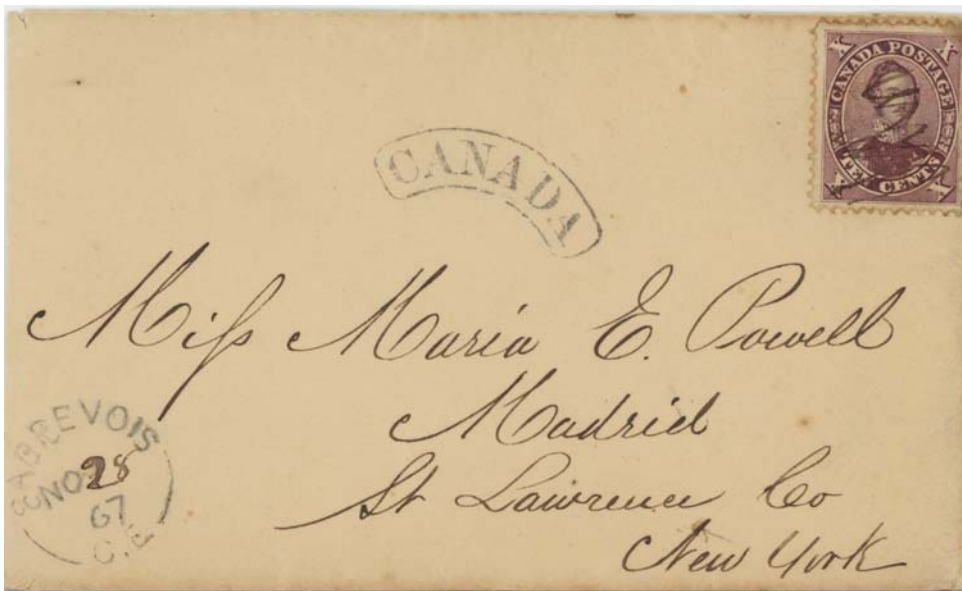 X X
CANADA POSTAGE
TEN CENTS
X X
CANADA
Miſs Maria E. Powell
Madrid
St Lawrence Co
New York
SABREVOIS
NO 28
67
C.E